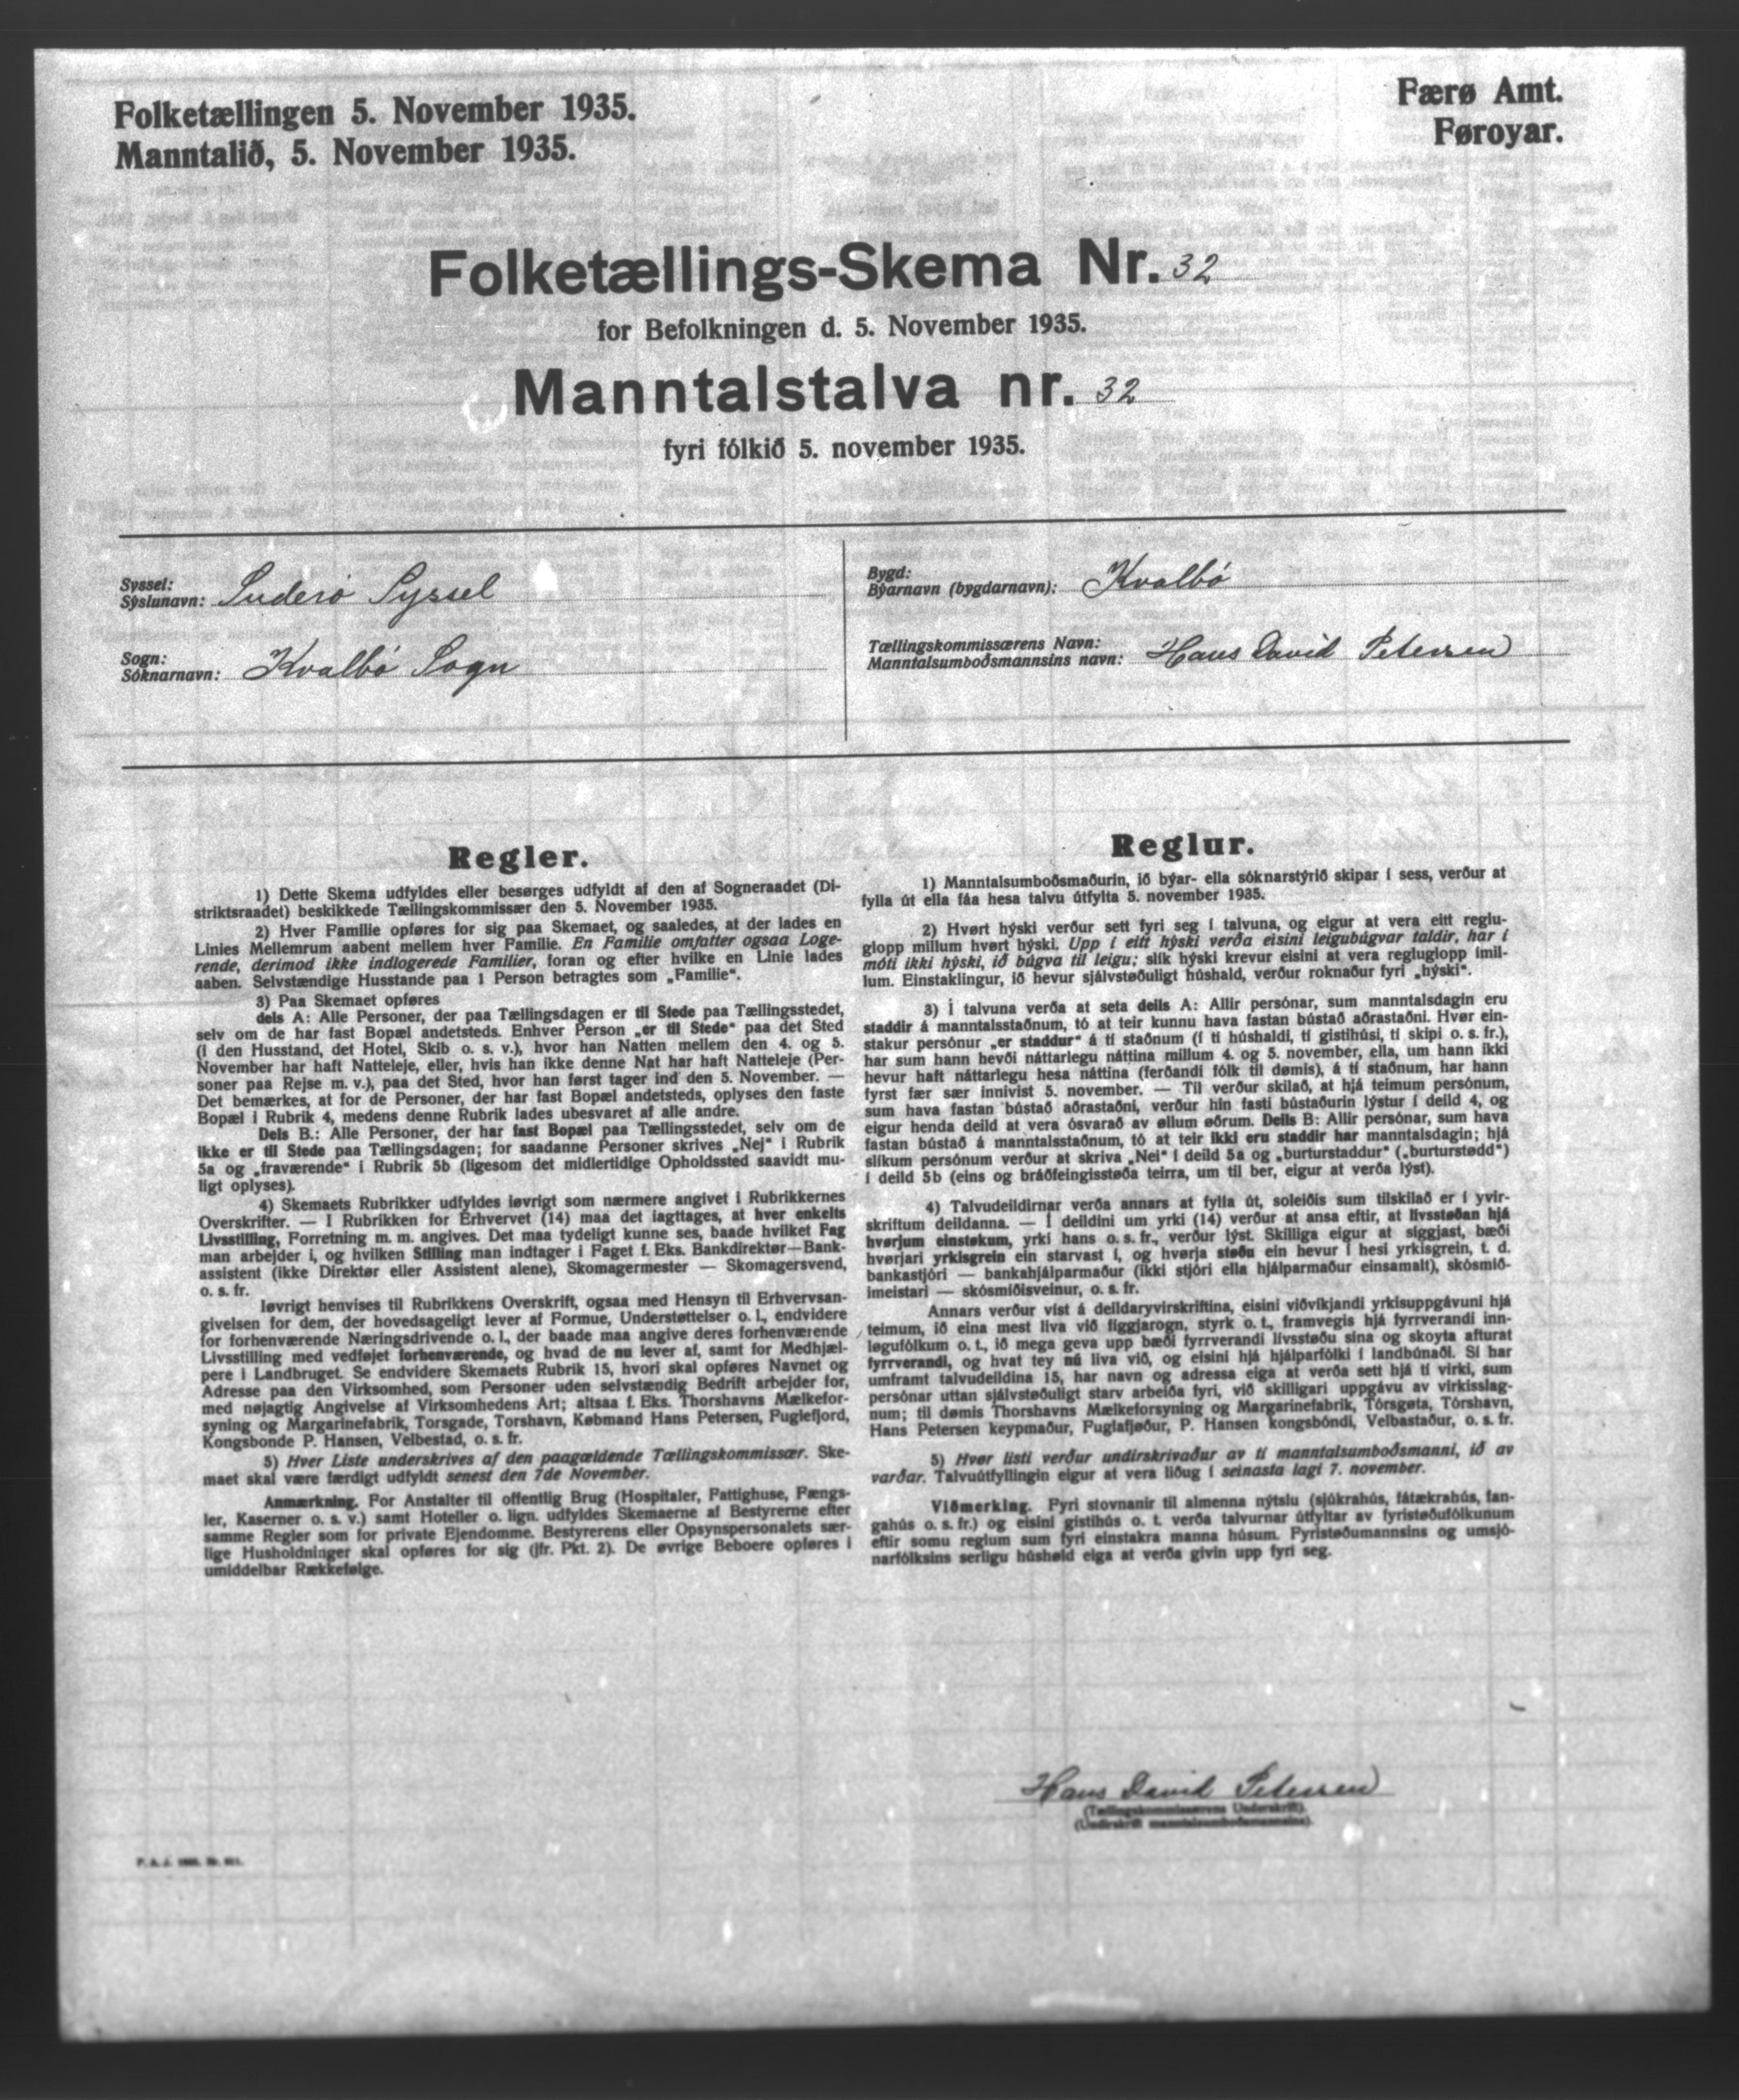 Folketællingen 5. November 1935.
Manntalið, 5. November 1935.
Færø Amt.
Føroyar.
Folketællings-Skema Nr. 32
for Befolkningen d. 5. November 1935.
Manntalstalva nr. 32
fyri fólkið 5. november 1935.
Syssel:
Sýslunavn: Suderø Syssel
Sogn:
Sóknarnavn: Kvalbø Sogn
Bygd:
Býarnavn (bygdarnavn): Kvalbø
Tællingskommissærens Navn:
Manntalsumboðsmannsins navn: Hans David Petersen
Regler.
1) Dette Skema udfyldes eller besørges udfyldt af den af Sogneraadet (Di-
striktsraadet) beskikkede Tællingskommissær den 5. November 1935.
2) Hver Familie opføres for sig paa Skemaet, og saaledes, at der lades en
Linies Mellemrum aabent mellem hver Familie. En Familie omfatter ogsaa Loge-
rende, derimod ikke indlogerede Familier, foran og efter hvilke en Linie lades
aaben. Selvstændige Husstande paa 1 Person betragtes som „Familie“.
3) Paa Skemaet opføres
dels A: Alle Personer, der paa Tællingsdagen er til Stede paa Tællingsstedet,
selv om de har fast Bopæl andetsteds. Enhver Person „er til Stede“ paa det Sted
(i den Husstand, det Hotel, Skib o. s. v.), hvor han Natten mellem den 4. og 5.
November har haft Natteleje, eller, hvis han ikke denne Nat har haft Natteleje (Per-
soner paa Rejse m. v.), paa det Sted, hvor han først tager ind den 5. November. —
Det bemærkes, at for de Personer, der har fast Bopæl andetsteds, oplyses den faste
Bopæl i Rubrik 4, medens denne Rubrik lades ubesvaret af alle andre.
Dels B.: Alle Personer, der har fast Bopæl paa Tællingsstedet, selv om de
ikke er til Stede paa Tællingsdagen; for saadanne Personer skrives „Nej“ i Rubrik
5a og „fraværende“ i Rubrik 5b (ligesom det midlertidige Opholdssted saavidt mu-
ligt oplyses).
4) Skemaets Rubrikker udfyldes iøvrigt som nærmere angivet i Rubrikkernes
Overskrifter. — I Rubrikken for Erhvervet (14) maa det iagttages, at hver enkelts
Livsstilling, Forretning m. m. angives. Det maa tydeligt kunne ses, baade hvilket Fag
man arbejder i, og hvilken Stilling man indtager i Faget f. Eks. Bankdirektør—Bank-
assistent (ikke Direktør eller Assistent alene), Skomagermester — Skomagersvend,
o. s. fr.
Iøvrigt henvises til Rubrikkens Overskrift, ogsaa med Hensyn til Erhvervsan-
givelsen for dem, der hovedsageligt lever af Formue, Understøttelser o. l., endvidere
for forhenværende Næringsdrivende o. l., der baade maa angive deres forhenværende
Livsstilling med vedføjet forhenværende, og hvad de nu lever af, samt for Medhjæl-
pere i Landbruget. Se endvidere Skemaets Rubrik 15, hvori skal opføres Navnet og
Adresse paa den Virksomhed, som Personer uden selvstændig Bedrift arbejder for,
med nøjagtig Angivelse af Virksomhedens Art; altsaa f. Eks. Thorshavns Mælkefor-
syning og Margarinefabrik, Torsgade, Torshavn, Købmand Hans Petersen, Fuglefjord,
Kongsbonde P. Hansen, Velbestad, o. s. fr.
5) Hver Liste underskrives af den paagældende Tællingskommissær. Ske-
maet skal være færdigt udfyldt senest den 7de November.
Anmærkning. For Anstalter til offentlig Brug (Hospitaler, Fattighuse, Fængs-
ler, Kaserner o. s. v.) samt Hoteller o. lign. udfyldes Skemaerne af Bestyrerne efter
samme Regler som for private Ejendomme. Bestyrerens eller Opsynspersonalets sær-
lige Husholdninger skal opføres for sig (jfr. Pkt. 2). De øvrige Beboere opføres i
umiddelbar Rækkefølge.
Reglur.
1) Manntalsumboðsmaðurin, ið býar- ella sóknarstýrið skipar í sess, verður at
fylla út ella fáa hesa talvu útfylta 5. november 1935.
2) Hvørt hýski verður sett fyri seg í talvuna, og eigur at vera eitt reglu-
glopp millum hvørt hýski. Upp í eitt hýski verða eisini leigubúgvar taldir, har í
móti ikki hýski, ið búgva til leigu; slík hýski krevur eisini at vera regluglopp ímil-
lum. Einstaklingur, ið hevur sjálvstøðuligt húshald, verður roknaður fyri „hýski“.
3) Í talvuna verða at seta deils A: Allir persónar, sum manntalsdagin eru
staddir á manntalsstaðnum, tó at teir kunnu hava fastan bústað aðrastaðni. Hvør ein-
stakur persónur „er staddur“ á tí staðnum (í tí húshaldi, tí gistihúsi, tí skipi o. s. fr.),
har sum hann hevði náttarlegu náttina millum 4. og 5. november, ella, um hann ikki
hevur haft náttarlegu hesa náttina (ferðandi fólk til dømis), á tí staðnum, har hann
fyrst fær sær innivist 5. november. — Til verður skilað, at hjá teimum persónum,
sum hava fastan bústað aðrastaðni, verður hin fasti bústaðurin lýstur í deild 4, og
eigur henda deild at vera ósvarað av øllum øðrum. Deils B: Allir persónar, sum hava
fastan bústað á manntalsstaðnum, tó at teir ikki eru staddir har manntalsdagin; hjá
slíkum persónum verður at skriva „Nei“ í deild 5a og „burturstaddur“ („burturstødd“)
í deild 5b (eins og bráðfeingisstøða teirra, um til ber, eigur at verða lýst).
4) Talvudeildirnar verða annars at fylla út, soleiðis sum tilskilað er í yvir-
skriftum deildanna. — Í deildini um yrki (14) verður at ansa eftir, at livsstøðan hjá
hvørjum einstøkum, yrki hans o. s. fr., verður lýst. Skilliga eigur at siggjast, bæði
hvørjari yrkisgrein ein starvast í, og hvørja støðu ein hevur í hesi yrkisgrein, t. d.
bankastjóri — bankahjálparmaður (ikki stjóri ella hjálparmaður einsamalt), skósmið-
imeistari — skósmiðisveinur, o. s. fr.
Annars verður víst á deildaryvirskriftina, eisini viðvíkjandi yrkisuppgávuni hjá
teimum, ið eina mest liva við figgjarogn, styrk o. t., framvegis hjá fyrrverandi inn-
løgufólkum o. t., ið mega geva upp bæði fyrrverandi livsstøðu sína og skoyta afturat
fyrrverandi, og hvat tey nú liva við, og eisini hjá hjálparfólki í landbúnaði. Sí har
umframt talvudeildina 15, har navn og adressa eiga at verða sett hjá tí virki, sum
persónar uttan sjálvstøðuligt starv arbeiða fyri, við skilligari uppgávu av virkisslag-
num; til dømis Thorshavns Mælkeforsyning og Margarinefabrik, Tórsgøta, Tórshavn,
Hans Petersen keypmaður, Fuglafjøður, P. Hansen kongsbóndi, Velbastaður, o. s. fr.
5) Hvør listi verður undirskrivaður av tí manntalsumboðsmanni, ið av
varðar. Talvuútfyllingin eigur at vera liðug í seinasta lagi 7. november.
Viðmerking. Fyri stovnanir til almenna nýtslu (sjúkrahús, fátækrahús, fan-
gahús o. s. fr.) og eisini gistihús o. t. verða talvurnar útfyltar av fyristøðufólkunum
eftir somu reglum sum fyri einstakra manna húsum. Fyristøðumannsins og umsjó-
narfólksins serligu húshøld eiga at verða givin upp fyri seg.
Hans David Petersen
(Tællingskommissærens Underskrift).
(Undirskrift manntalsumboðsmannsins).